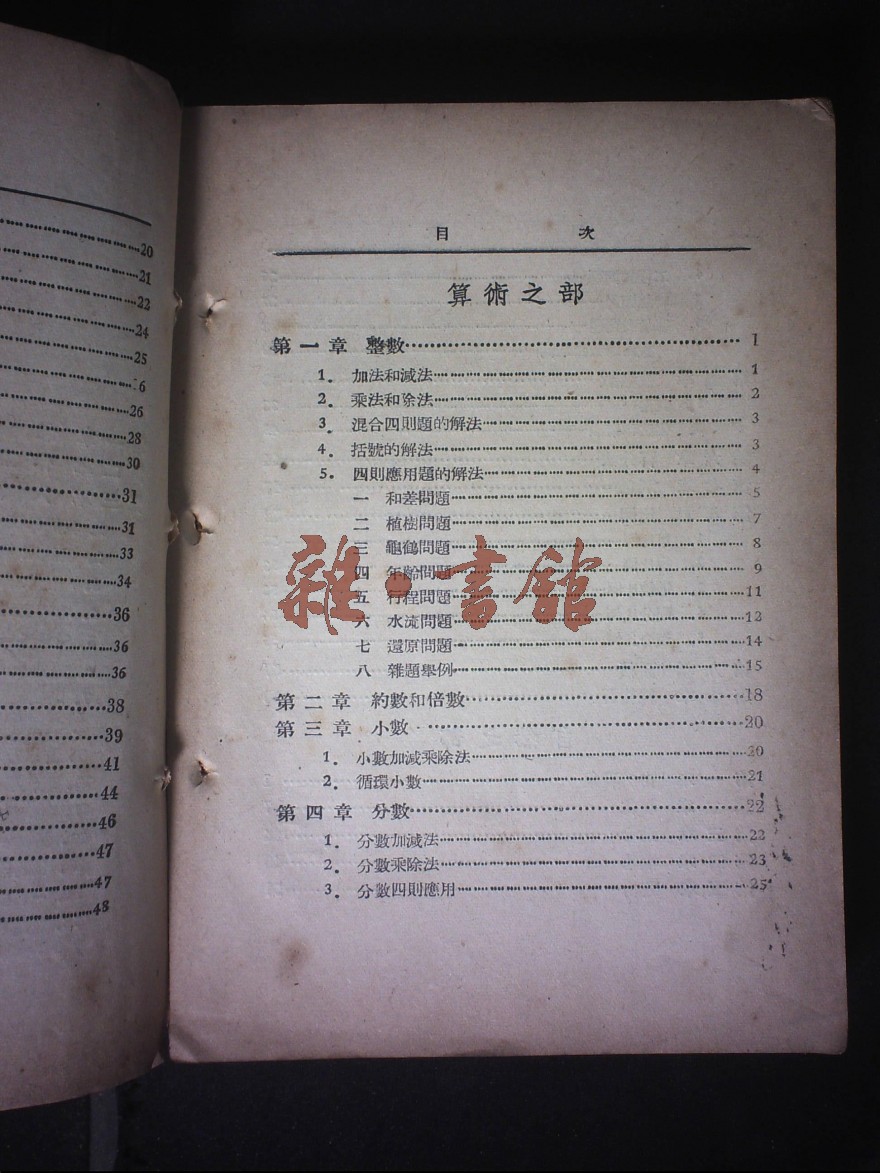 20
21
22
24
25
6
26
28
30
31
31
33
34
36
36
36
38
39
41
44
46
47
47
48
目 次
算術之部
第一章 整數 1
1. 加法和減法 1
2. 乘法和除法 2
3. 混合四則題的解法 3
4. 括號的解法 3
5. 四則應用題的解法 4
一 和差問題 5
二 植樹問題 7
三 龜鶴問題 8
四 年齡問題 9
五 行程問題 11
六 水流問題 12
七 還原問題 14
八 雜題舉例 15
第二章 約數和倍數 18
第三章 小數 20
1. 小數加減乘除法 20
2. 循環小數 21
第四章 分數 22
1. 分數加減法 22
2. 分數乘除法 23
3. 分數四則應用 25
雜·書館